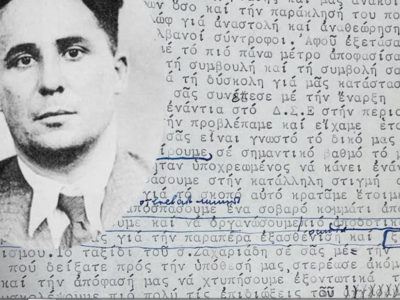 ων ὅσο καί τήν παράκλησή του πο
ὼφ γιά ἀναστολή καί ἀναθεώρηση
λβανοί σύντροφοι. Ἀφοῦ ἐξετάσα
μέ τό πιό πάνω μέτρο ἀποφασίσα
τή συμβουλή καί τή συμβολή σα
ά τή δύσκολη γιά μᾶς κατάστασ
σᾶς συνέπεσε μέ τήν ἔναρξη
ἐνάντια στό Δ.Σ.Ε στήν περιο
τήν προβλέπαμε καί εἴχαμε ἑτο
σᾶς εἶναι γνωστό τό δικό μας
ίρουμε σέ σημαντικό βαθμό τό μ
ἦταν ὑποχρεωμένος νά κάνει ἐνάν
άσουμε στήν κατάλληλη στιγμή
γιά τό σκοπό αὐτό κρατᾶμε ἕτοιμε
ἀποσπάσουμε ἕνα σοβαρό κομμάτι ἀπό
υμε καί νά ὀργανώσουμε
ς γιά τήν παραπέρα ἐξασθένιση καί
ισμοῦ. Τό ταξίδι τοῦ σ. Ζαχαριάδη σέ σᾶς μέ τήν
που δείξατε πρός τήν ὑπόθεσή μας, στερέωσε ἀκόμα
καί τήν ἀπόφασή μας νά χτυπήσουμε ἐξοντωτικά τό